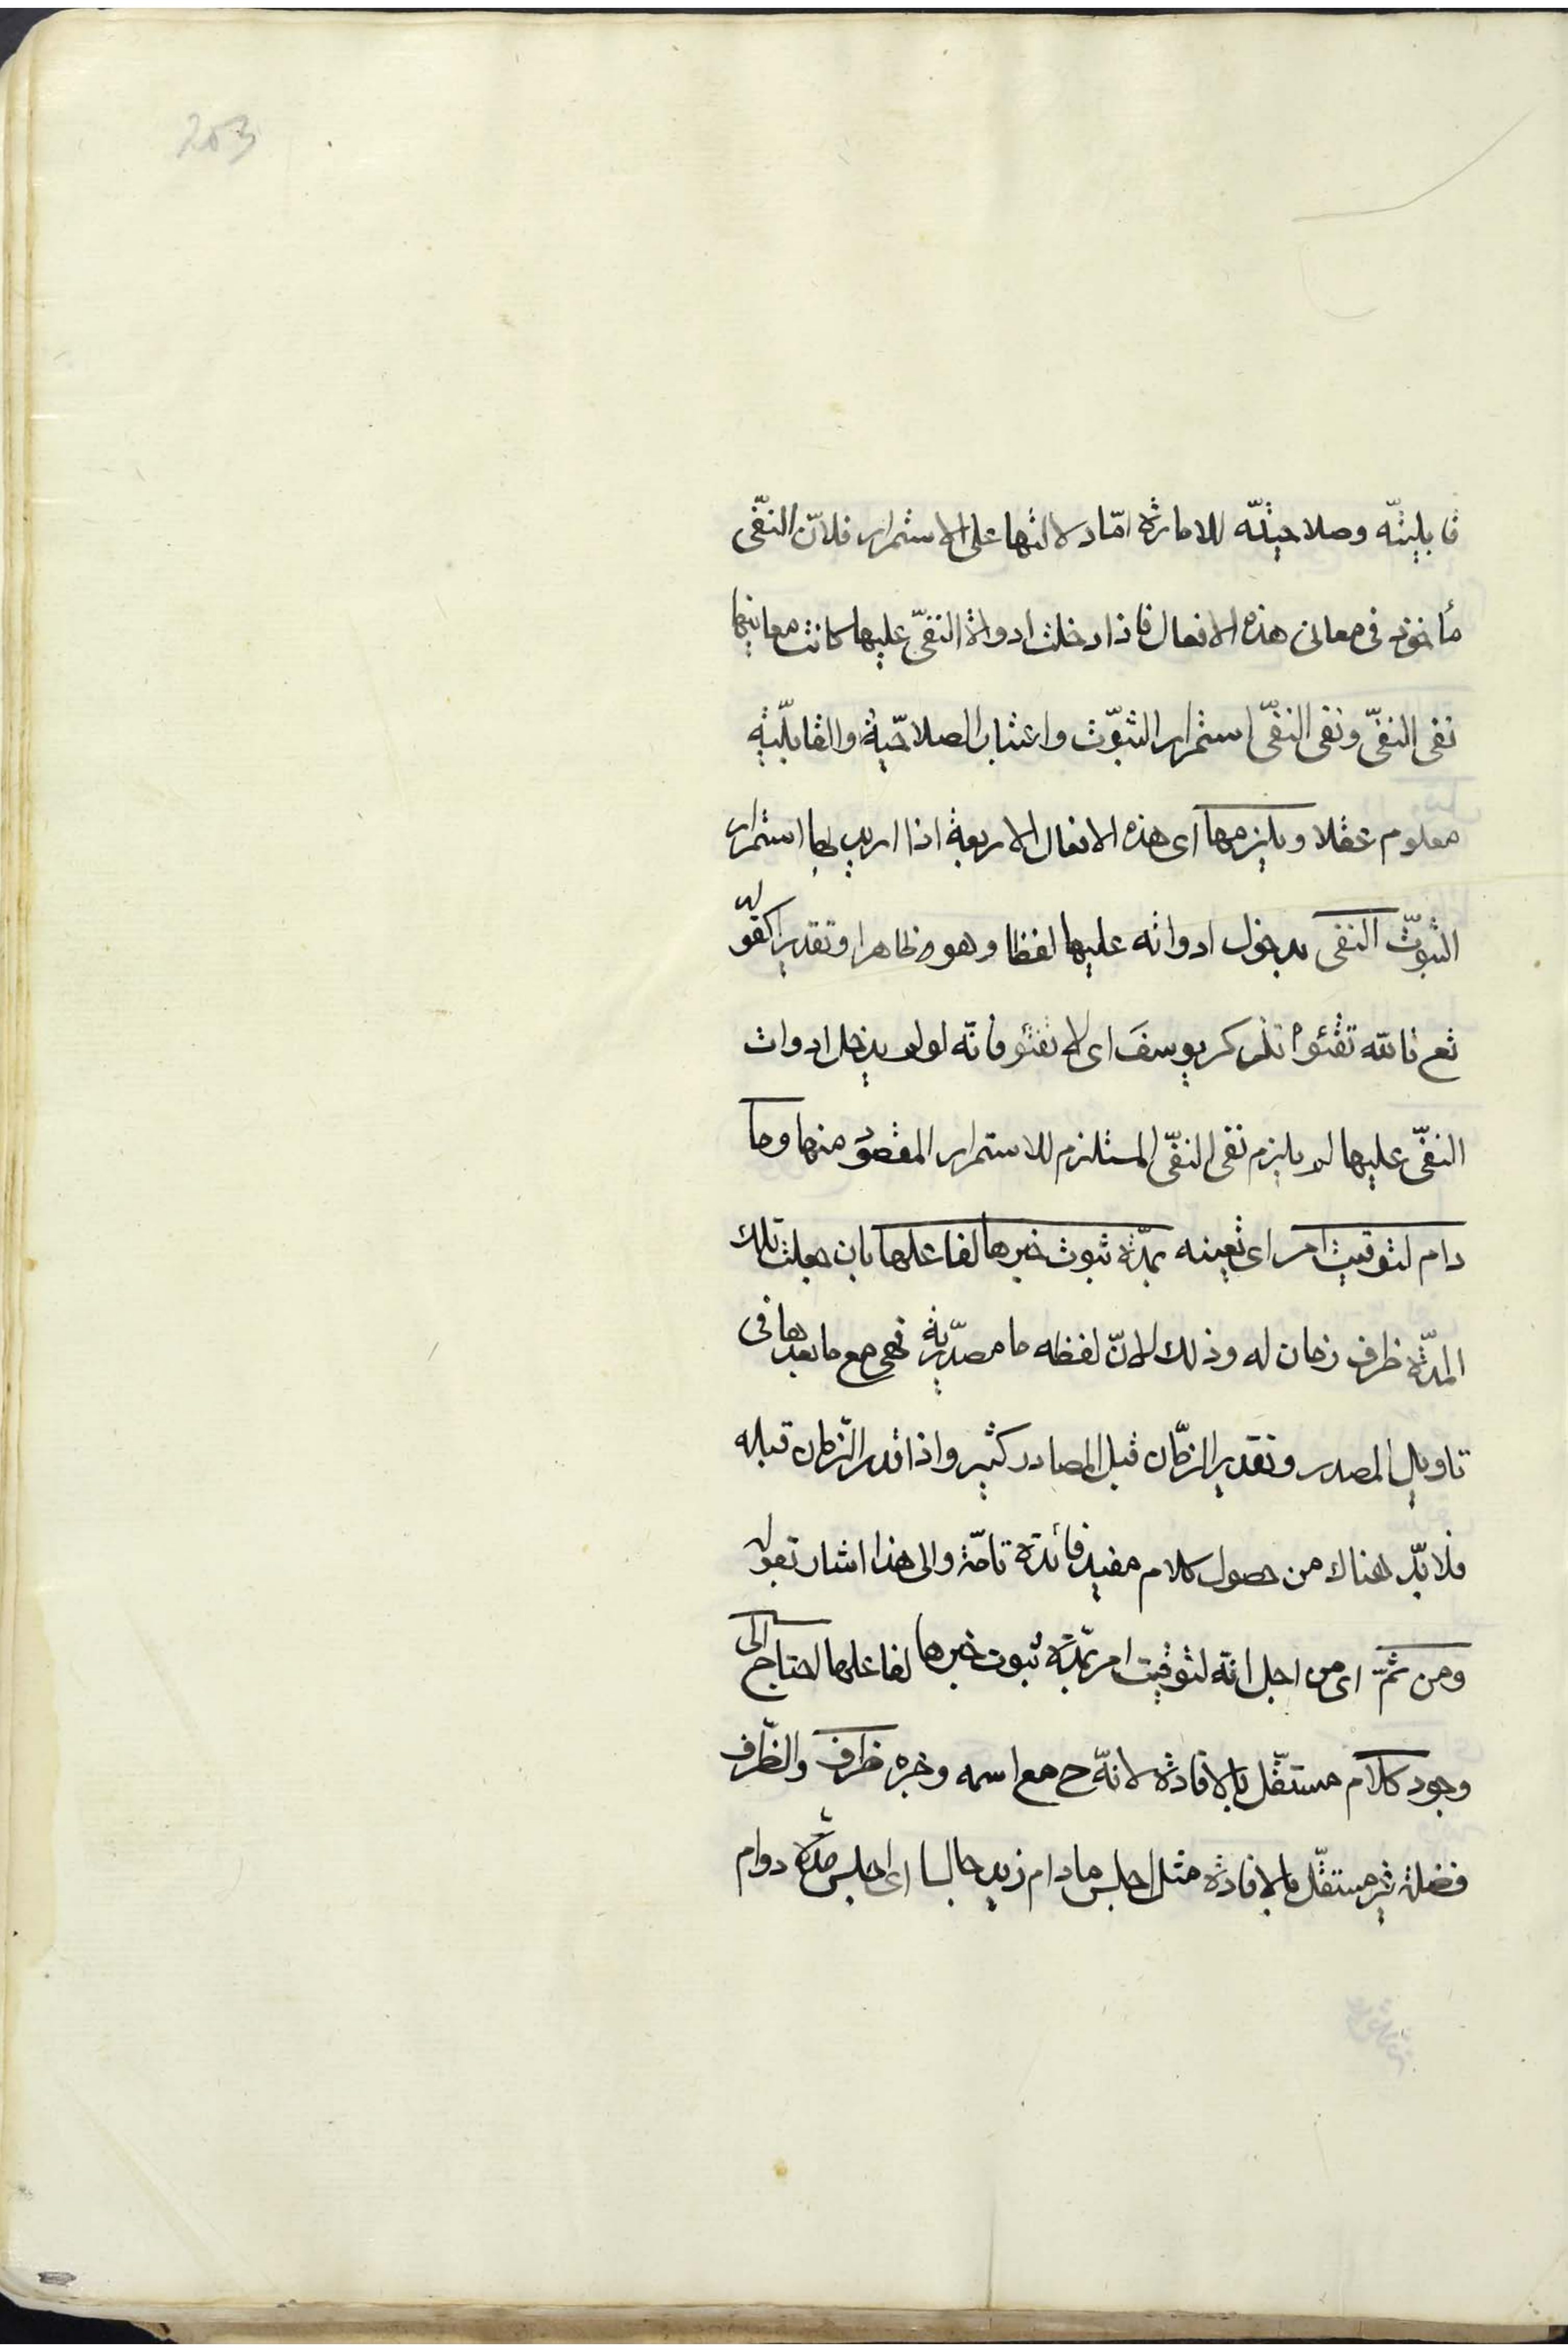 203
قابليتّه وصلاحيتّه للامارة امّا دلالتها على الاستمرار فلانّ النفّى
مأخوذ فى معانى هذه الافعال فاذا دخلت ادواة النفىّ عليها كانت معانيها
نفى النفىّ ونفى النفىّ استمرار الثبّوت واعتبار الصلاحيّة والقابليّة
معلوم عقلا ويلزمها اى هذه الافعال الاربعة اذا اريد بها استمرار
الثبّوت النفى بدخول ادواته عليها لفظا وهو ظاهرا وتقديرا كقوله
تع تالله تفتؤا تذكر يوسفَ اى لا تفتؤ فانّه لو لم يدخل ادوات
النفىّ عليها لم يلزم نفى النفىّ المستلزم للاستمرار المقصود منها وما
دام لتوقيت امر اى تعينه بمدّة ثبوت خبرها لفاعلها بان جعلت تلك
المدّة ظرف زمان له وذلك لانّ لفظه ما مصدّرية فهى مع ما بعدها فى
تاويل المصدر وتقدير الزّمان قبل المصادر كثير واذا قدر الزّمان قبله
فلا بدّ هناك من حصول كلام مفيد فائدة تامّة والى هذا اشار بقوله
ومن ثمّ اى من اجل انّه لتوقيت امر بمدّة ثبوت خبرها لفاعلها احتاج الى
وجود كلام مستقّل بالافادة لانّه ح مع اسمه وخبره ظرف والظّرف
فضلة غير مستقّل بالافادة مثل اجلس مادام زيد جالسا اى اجلس مدّة دوام